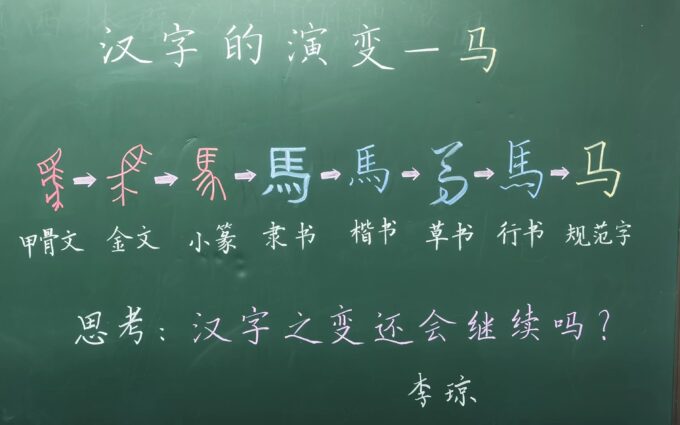 汉字的演变—马
馬→馬→馬→馬→馬→馬→馬→马
甲骨文 金文 小篆 隶书 楷书 草书 行书 规范字
思考：汉字之变还会继续吗？
李琼